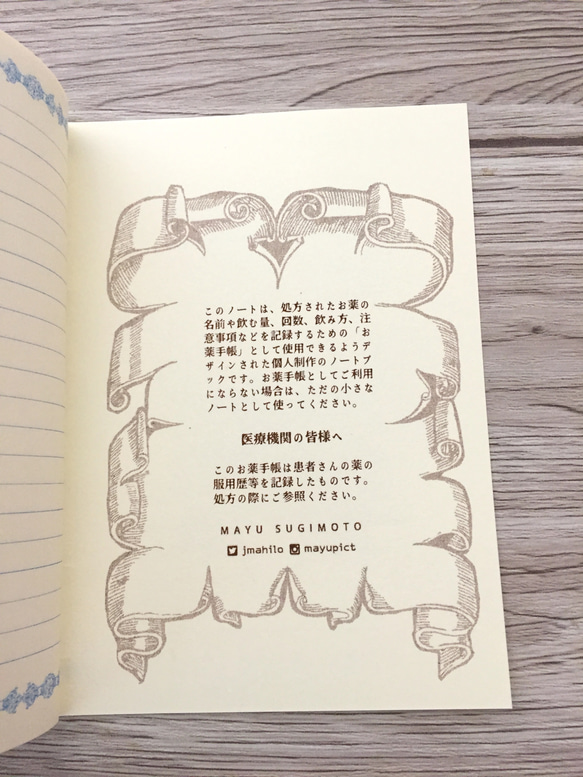 このノートは、処方されたお薬の
名前や飲む量、回数、飲み方、注
意事項などを記録するための「お
薬手帳」として使用できるようデ
ザインされた個人制作のノートブ
ックです。お薬手帳としてご利用
にならない場合は、ただの小さな
ノートとして使ってください。
医療機関の皆様へ
このお薬手帳は患者さんの薬の
服用歴等を記録したものです。
処方の際にご参照ください。
MAYU SUGIMOTO
jmahilo mayupict